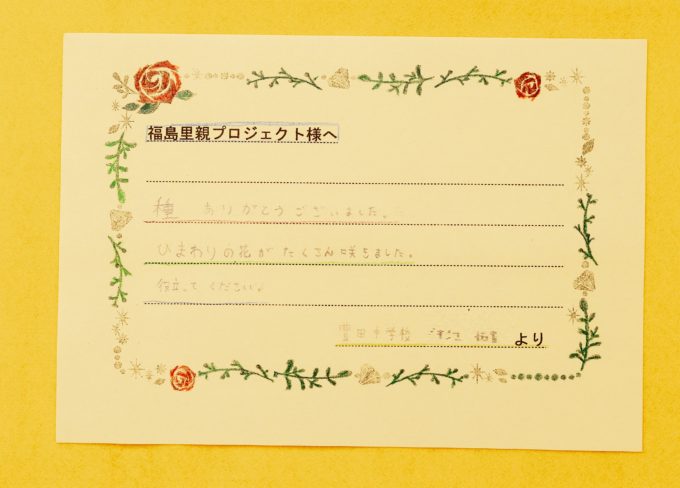 福島里親プロジェクト様へ
種 ありがとうございました。
ひまわりの花が たくさん咲きました。
役立って ください。
豊田中学校 より